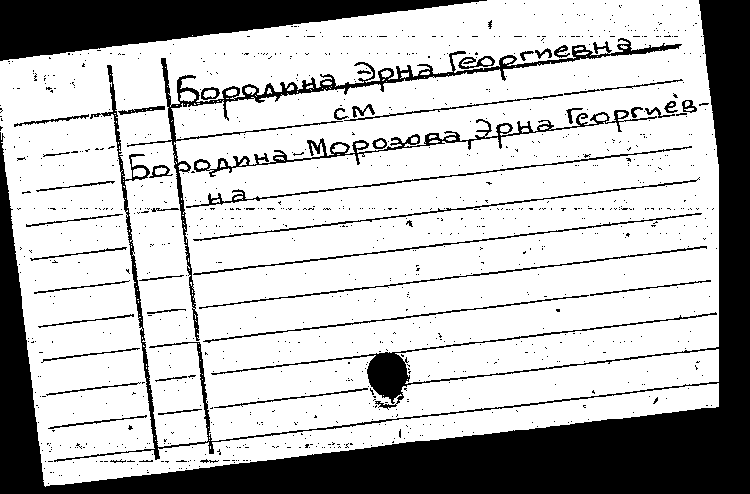 Бородина, Эрна Георгиевна
см
Бородина-Морозова, Эрна Георгиев-
на.